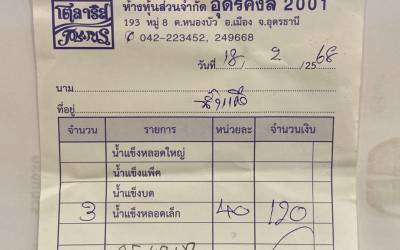 ห้างหุ้นส่วนจำกัด อุดรคงล 2001
193 หมู่ 8 ต.หนองบัว อ.เมือง จ.อุดรธานี
✆ 042-223452, 249668
วันที่ 18 / 2 / 2568
นาม
ที่อยู่
จำนวน รายการ หน่วยละ จำนวนเงิน
น้ำแข็งหลอดใหญ่
น้ำแข็งแพ็ค
น้ำแข็งบด
3 น้ำแข็งหลอดเล็ก 40 120